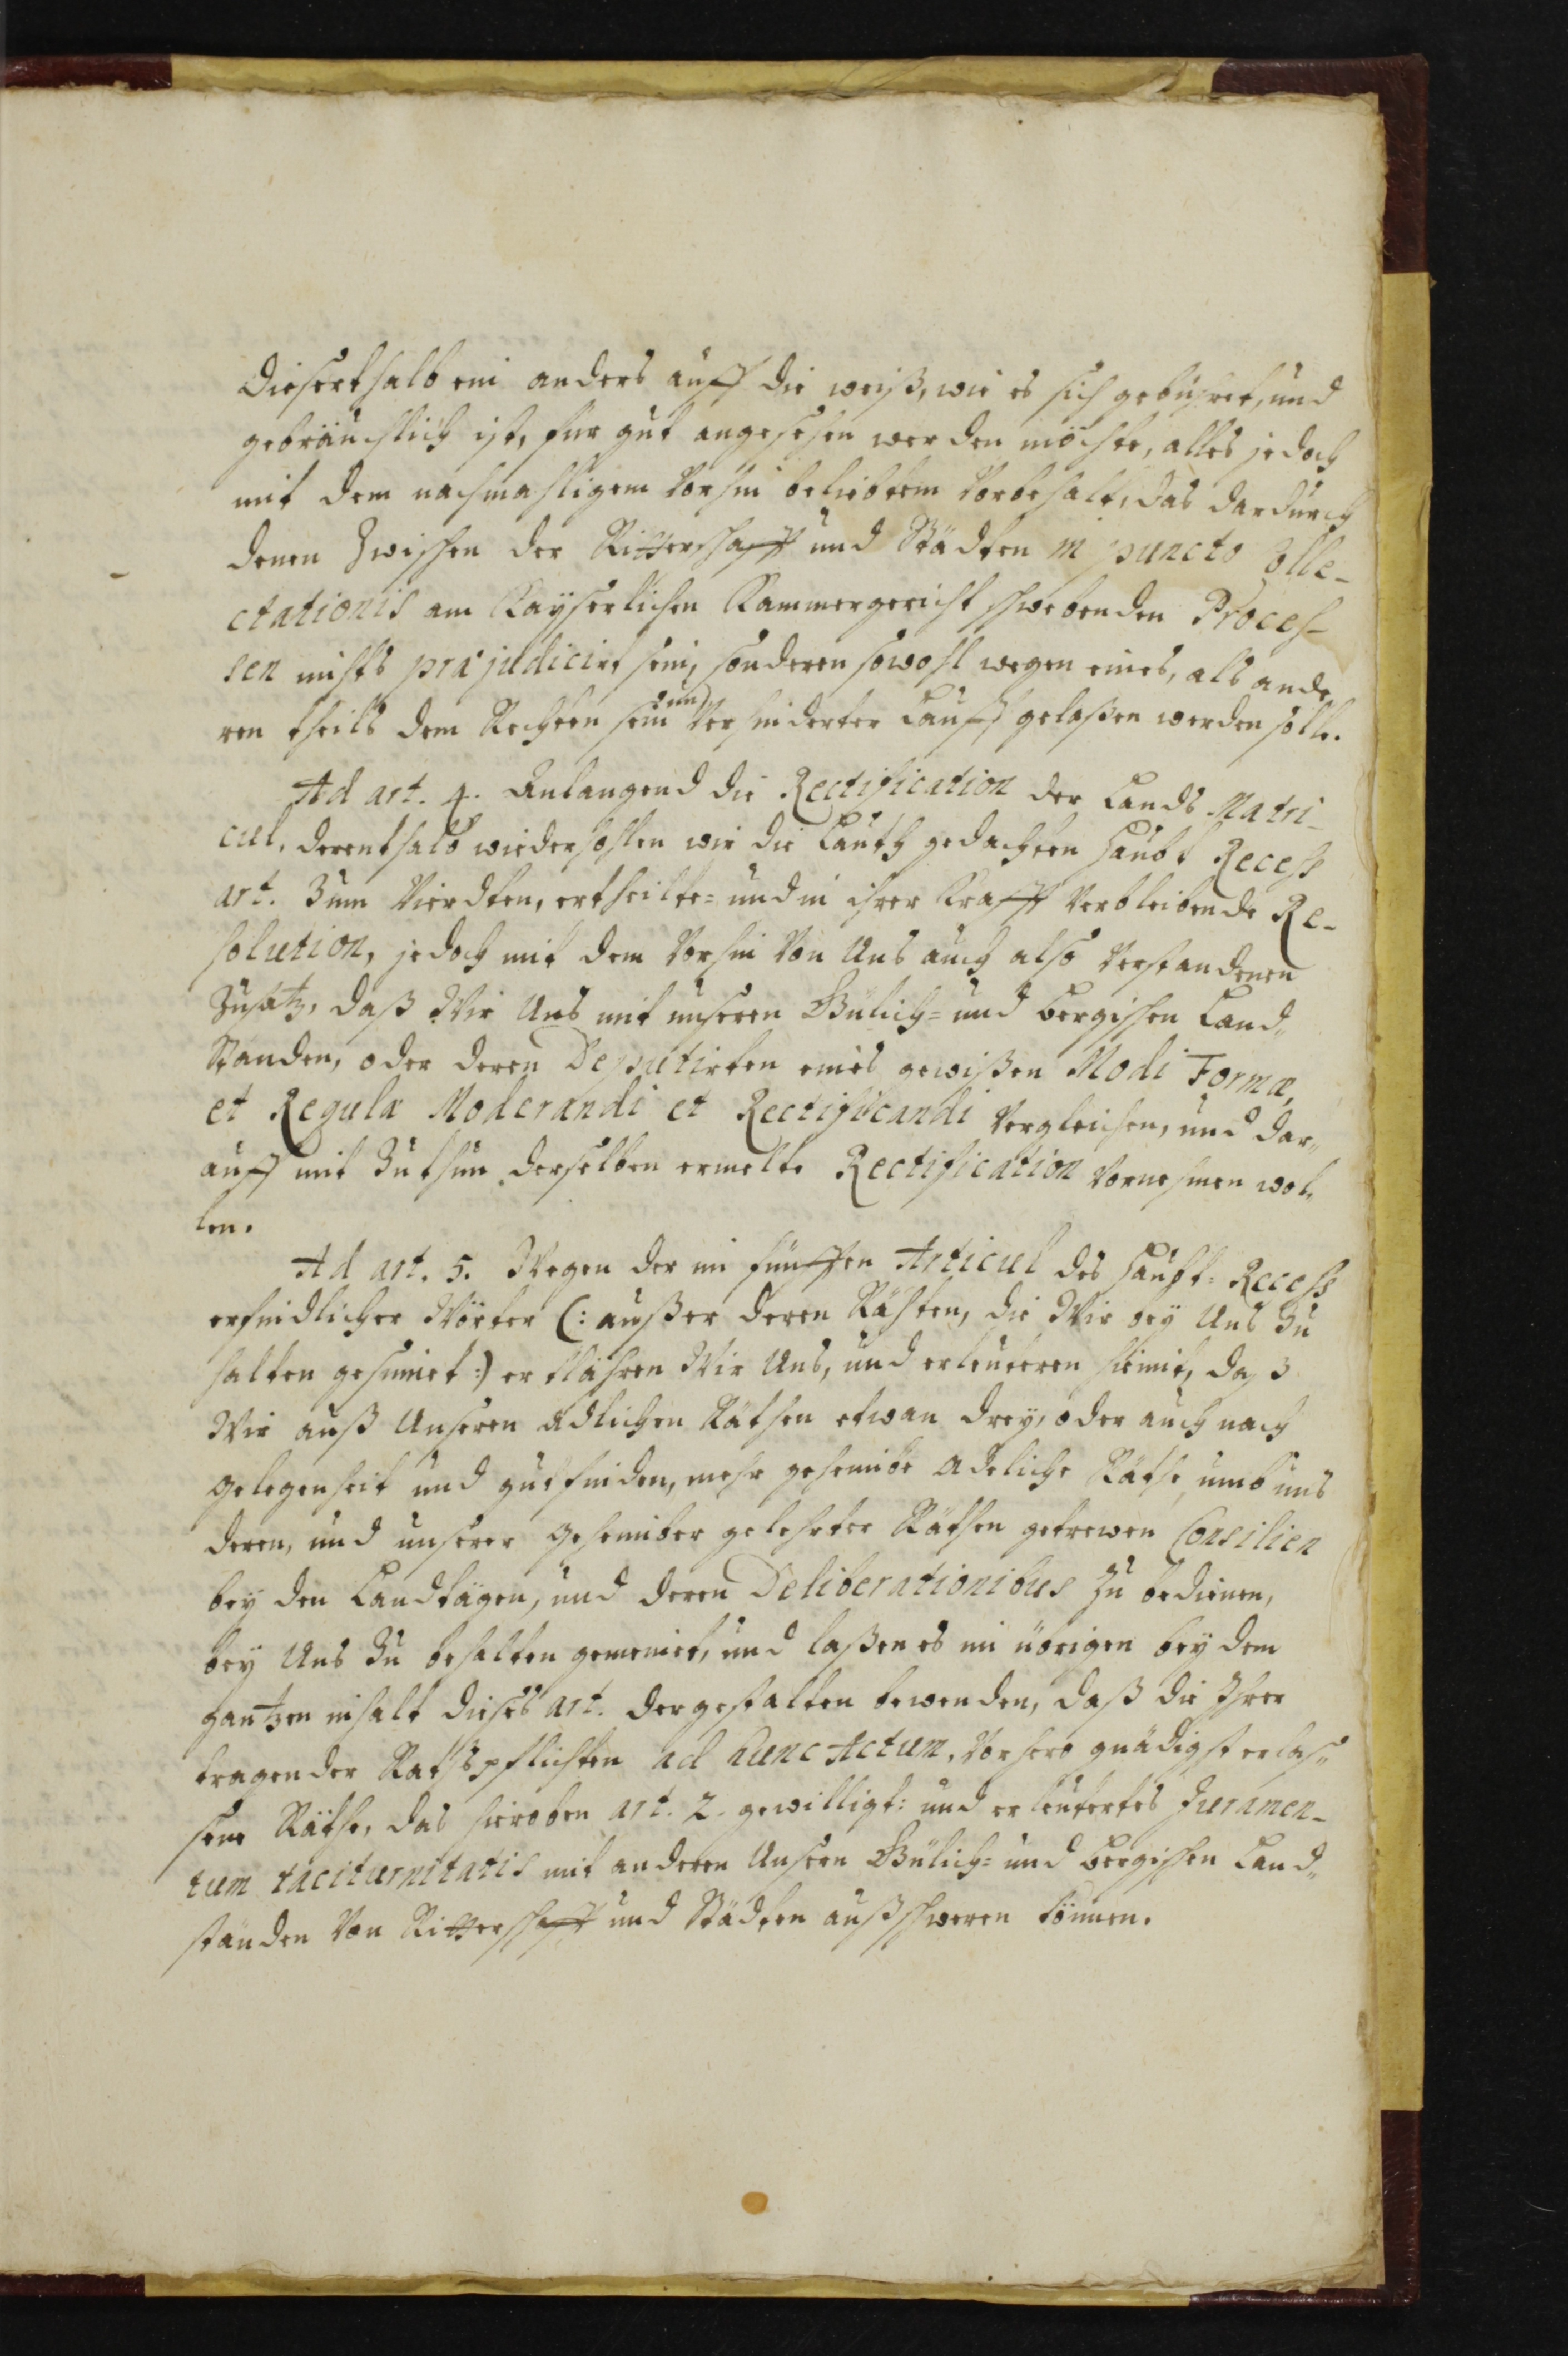 Dieserthalb ein anders auff die weiß, wie es sich gebühret, und
gebräuchlich ist, fur gut angesehen werden möchte, alles jedoch
mit dem nachmahligem vorhin beliebtem vorbehalt, das dardurch
denen Zwischen der Ritterschafft und Städten in puncto Colle-
ctationis am Kayserlichen Kammergericht schwebenden Proces-
sen nichts præjudicirt sein, sonderen sowohl wegen eines, als ande,
ren theils dem Rechten sein unverhinderter Lauff gelaßen werden solle.
Ad art. 4. Anlangend die Rectification der Lands Matri-
cul, derenthalb wiederhohlen wir die Lauth gedachten haubt Recess
art. Zum Vierdten, ertheilte= und in ihrer Krafft verbleibende Re-
solution, jedoch mit dem vorhin von Uns auch also verstandenen
Zusatz, daß Wir Uns mit unseren Gülich= und bergischen Land„
Standen, oder deren Deputirten eines gewißen Modi Formæ,
et Regulæ Moderandi et Rectificandi vergleichen, und dar„
auff mit Zuthun derselben ermelte Rectification vornehmen wol„
len.
Ad art. 5. Wegen der im fünfften Articul des haubt= Recess
erfindlicher Wörter (: außer deren Räthen, die Wir bey Uns Zu
halten gesinnet :) erklähren Wir Uns, und erleuteren hiemit, daß
Wir auß Unseren adlichen Räthen etwan drey, oder auch nach
gelegenheit und gutfinden, mehr geheimbe adeliche Räthe, umb uns
deren, und unserer geheimber gelehrter Räthen getrewen Consilien
bey den Landtägen, und deren Deliberationibus zu bedienen,
bey Uns Zu behalten gemeinet, und laßen es im übrigen bey dem
gantzen inhalt dieses art. dergestalten bewenden, daß die Ihrer
tragender Rathspflichten ad hunc Actum, vorhero gnädigst erlas„
sene Räthe, das hieroben art. 2. gewilligt= und erleutertes Juramen-
tum taciturnitatis mit anderen Unseren Gülich= und bergischen Land„
ständen von Ritterschafft und Städten außschweren können.